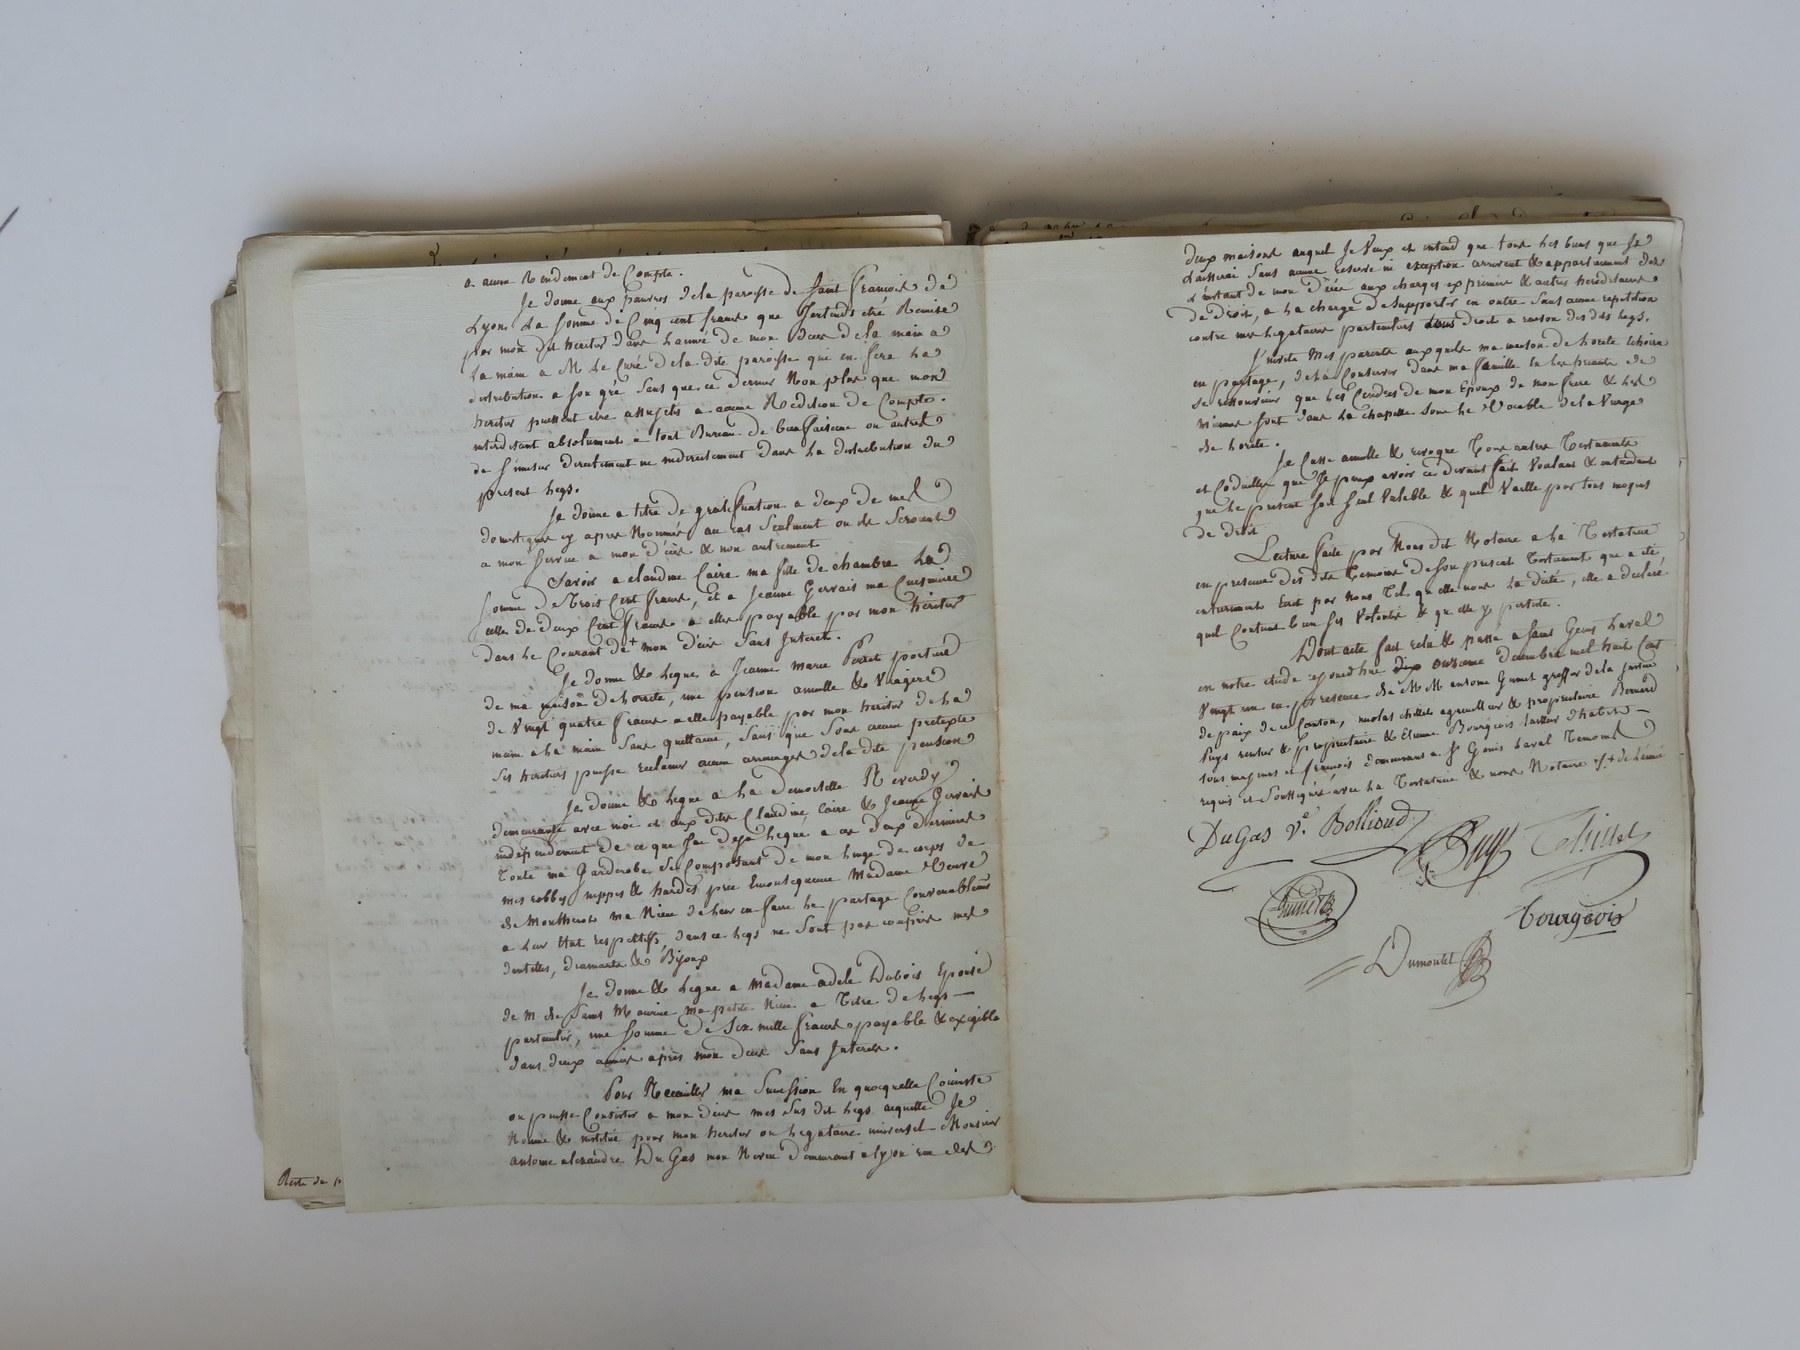 a aucun Rendement de Compte.
Je donne aux pauvres dela paroisse de Saint francois de
Lyon La somme de Cinq cent francs que J'entends etré Remise
par mon dit heritier dans Lannée de mon deces dela main a
La main a M Le Curé dela dite paroisse qui en fera La
distribution a son gré sans que ce dernier Non plus que mon
heritier puissent etre assujetis a aucune Redition de Compte.
interdisant absolument a tout Bureau de bienfaisance ou autres
de s'imiser directement ne indirectement dans La distribution du
present Legs.
Je donne a titre de gratiffication a deux de mes
domestiques cy apres Nommés au cas Seulment ou ils Seroient
a mon service a mon décès & non autrement
Savoir a claudine Caire ma fille de chambre La
somme de trois Cent francs, et a Jeanne Gervais ma Cuisiniere
celle de deux Cent francs a elles payable par mon heritier
dans Le Courant de + mon décès Sans Interets.
Je donne & Legue a Jeanne Marie portiere
de ma maison de Lorette, une pension annuelle & Viagere
de Vingt quatre francs a elle payable par mon heritier de La
main a La main Sans quittance, Sans que Sous aucun pretexte
Ses heritiers puisse reclamer aucun arrerages dela dite pension
Je donne & Legue a La demoiselle Reverdy
demeurante avec moi et aux dites Claudine Caire & Jeanne Gervais
independament de ce que j'ai deja Legue a ces deux dernieres
Toute ma Garderobe Se Composant de mon Linge de corps de
mes robbes, nippes & hardes prie Madame Veuve
de Montherot ma Niece de Leur en faire Le partage Convenablement
a Leur Etat respectifs, dans ce Legs ne Sont pas compris mes
dentelles, diamants & Bijoux
Je donne & Legue a Madame adele Dubois Epouse
de M. de Saint Maurice Ma petite Niece a Titre de Legs
particulier, une somme de Six mille francs payable & exigible
dans deux années après mon décès Sans Interets.
Pour Recueillir ma Succession En quoiquelle Consiste
ou puisse Consister a mon décès mes Sus dit Legs acquittés Je
Nomme & institue pour mon heritier ou Legataire universel Monsieur
antoine alexandre DuGas mon Neveu demeurant a Lyon rue des
Reste de p
deux maisons auquel Je Veux et entend que tous Les biens que Je
Laisserai Sans aucune reserve ni exception arrivent & appartiennent dès
L'instant de mon décès aux charges exprimées & autres hereditaires
de droit, a La charge de supporter en outre Sans aucune repetition
contre mes Legataires particuliers tous droits a raison des dits Legs.
J'invite Mes parents auxquels ma maison de Lorette echoira
en partage, de La Conserver dans ma famille
se ressouvenir que Les Cendres de mon Epoux de mon frere & Les
miennes sont dans La Chapelle sous Le Vocable dela Vierge
de Lorette.
Je Casse annulle & revoque Tous autres Testaments
et Codicilles que Je peux avoir ce devant fait Voulant & entendant
que Le present soit Seul Valable & quil Vaille par tous moyens
de droit
Lecture faite par Nous dit Notaire a La Testatrice
en presence des dits Temoins de son present Testament que a été,
entierement Ecrit par nous Tel quelle nous La dicté, elle a declaré
quil Contient bien Ses Volontés & quelle y persiste.
Dont acte fait relu & passé a Saint Genis Laval
en notre etude aujourdhui onzieme decembre mil huit Cent
Vingt un en presence de M M antoine Guinet greffier dela justice
de paix de ce Canton, nicolas chillet agriculteur & proprietaire Bernard
Puys rentier & proprietaire & Etienne Bourgeois tailleur d'habits
tous majeurs et françois demeurans a St Genis Laval Temoins
requis et Soussignés avec La Testatrice & nous Notaire
DuGas Ve. Bollioud
Puys Chillet
Guinet
Bourgeois
Dumoulet